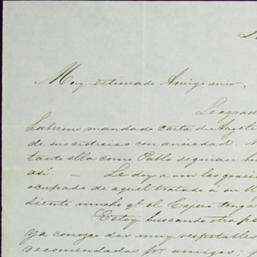 Muy estimado Amigo mio,
Le agrad
haberme mandado carta de Angel
de sus noticias con ansiedad.
tanto ella como Pablo seguian bu
así. — Le doy a vm las gracias
ocupado de aquel tratado a un
siento mucho qe el
Estoy buscando otra pe
ya conozco dos muy respetables
recomendadas por amigos,